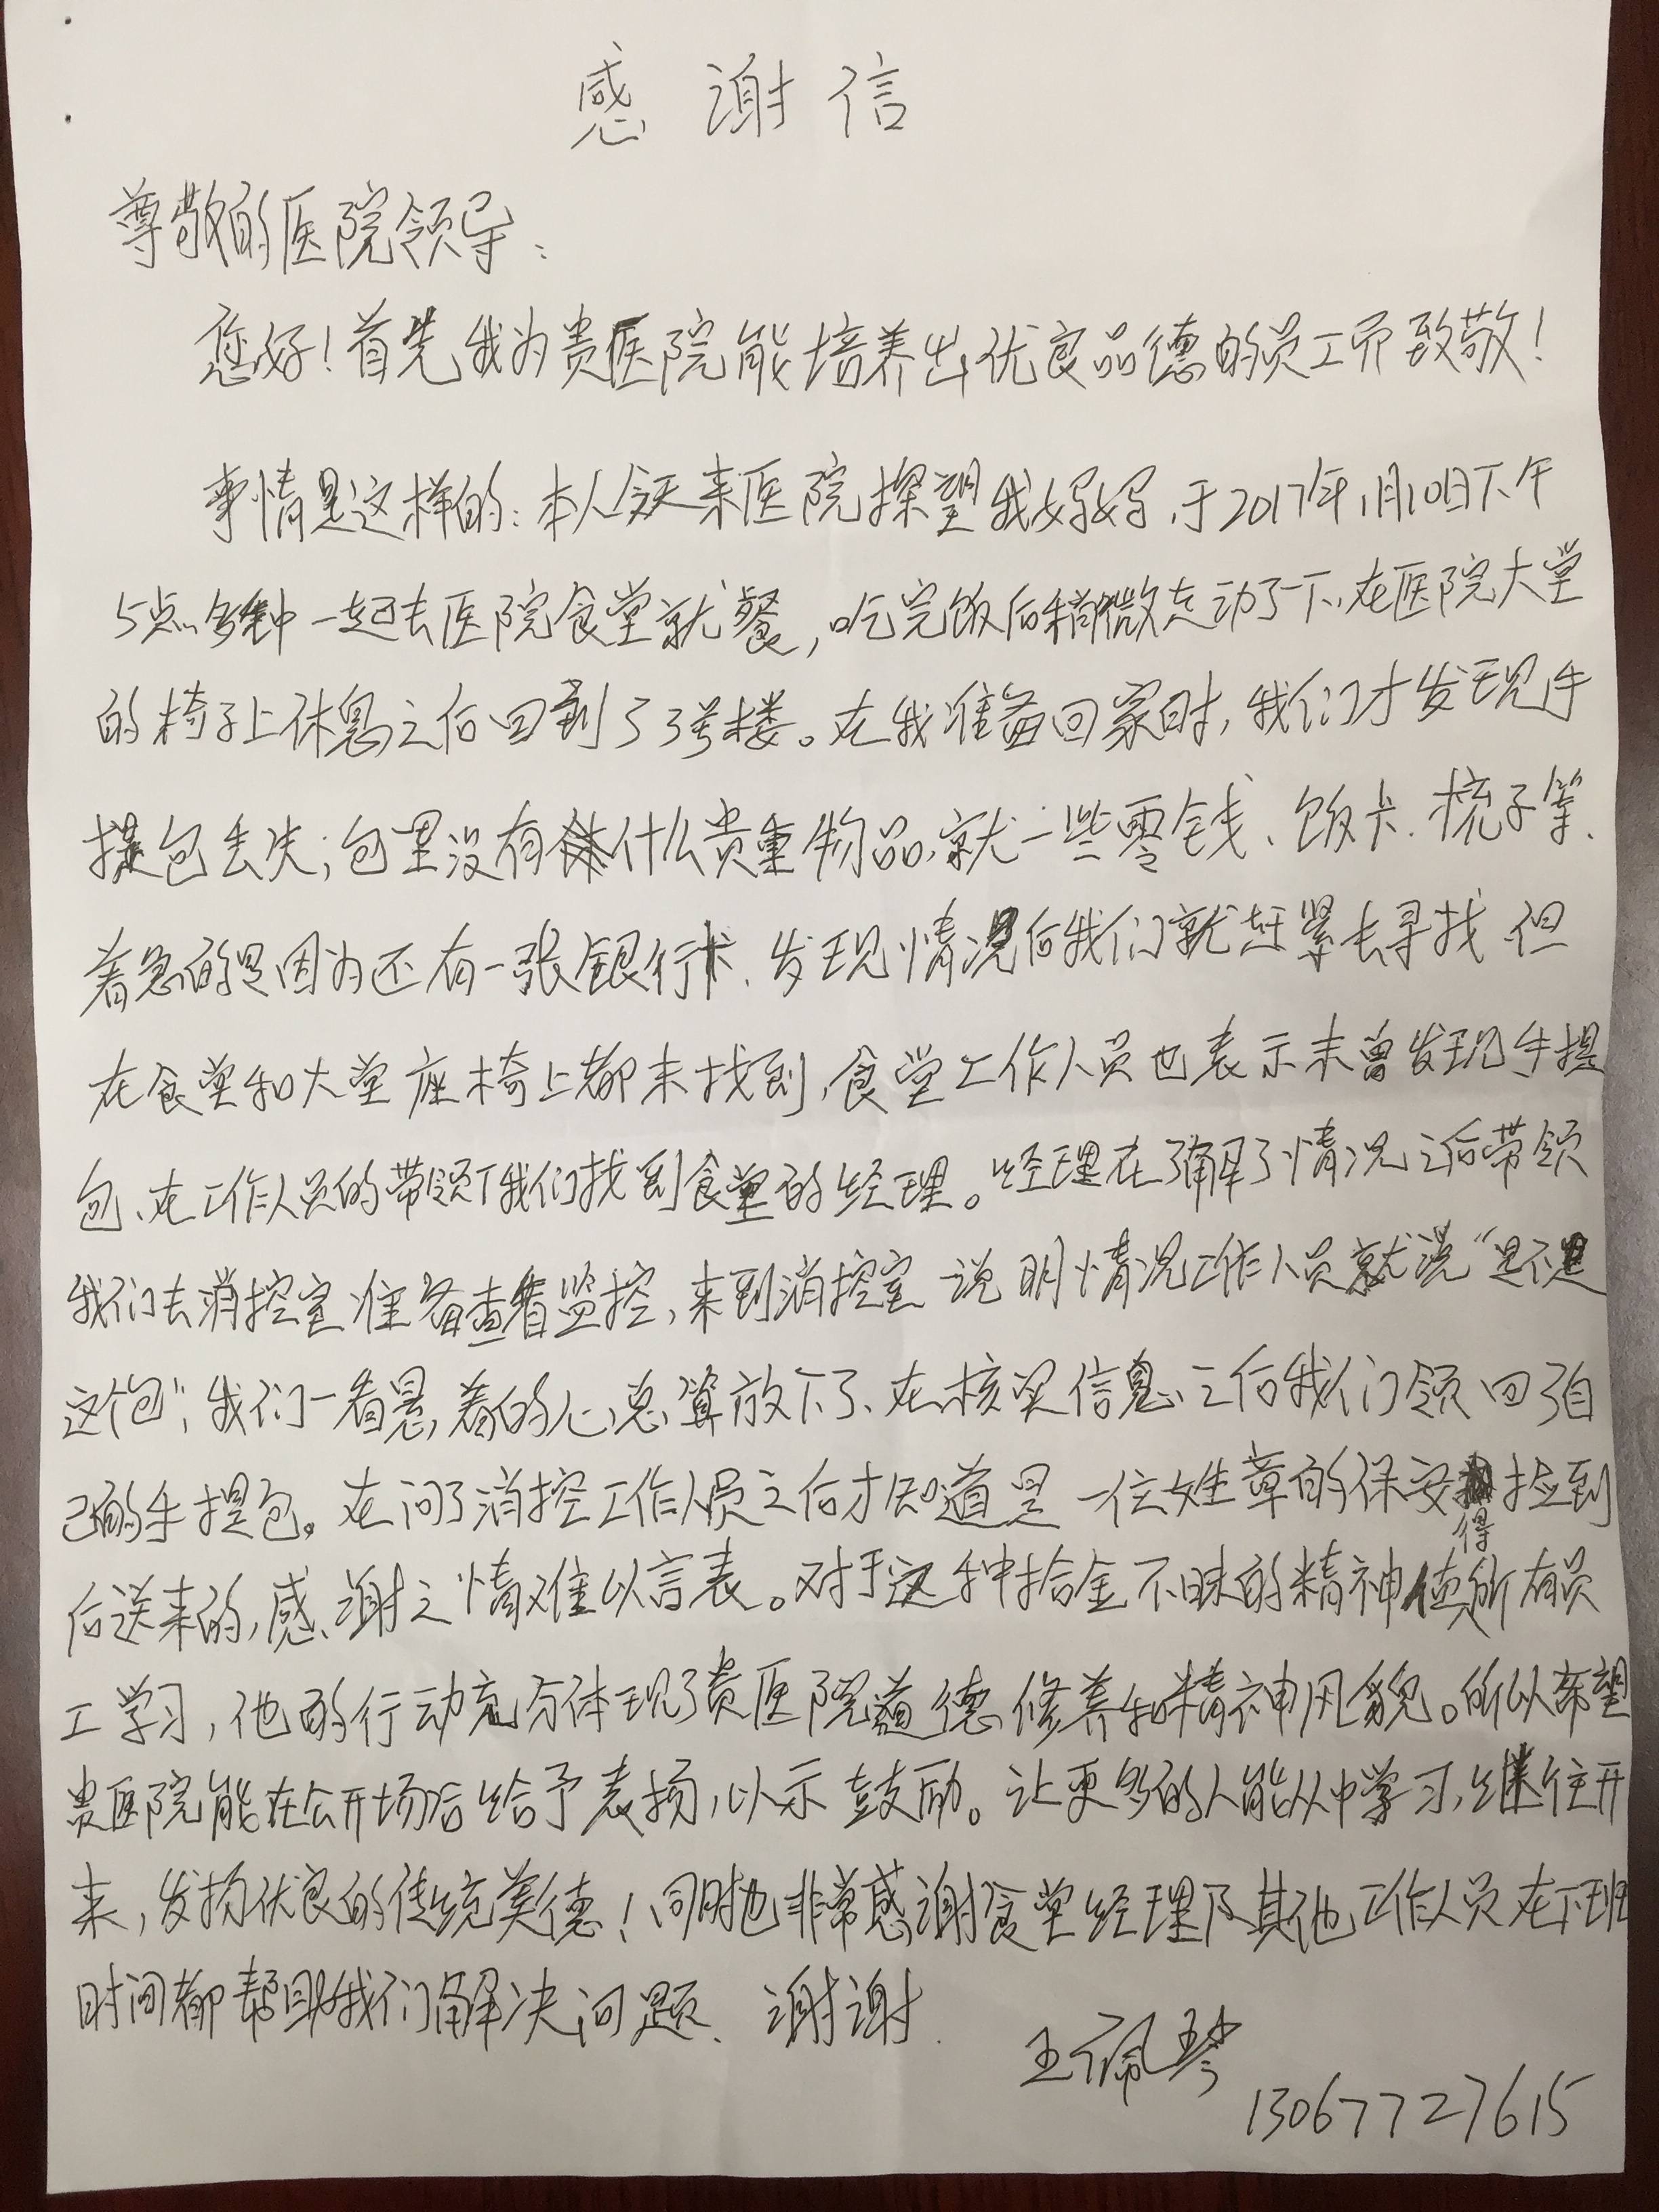 感谢信
尊敬的医院领导：
您好！首先我为贵医院能培养出优良品德的员工而致敬！
事情是这样的：本人今天来医院探望我妈妈，于2017年1月10日下午
5点多钟一起去医院食堂就餐，吃完饭后稍微走动了一下、在医院大堂
的椅子上休息之后回到了3号楼。在我准备回家时，我们才发现手
提包丢失；包里没有什么贵重物品，就一些零钱、饭卡、梳子等、
着急的是因为还有一张银行卡、发现情况后我们就赶紧去寻找 但
在食堂和大堂座椅上都未找到，食堂工作人员也表示未曾发现手提
包、在工作人员的带领下我们找到食堂的经理。经理在了解了情况之后带领
我们去消控室准备查看监控，来到消控室说明情况工作人员就说“是不是
这个包”，我们一看悬着的心总算放下了、在核实信息之后我们领回了自
己的手提包。在问了消控工作人员之后才知道是一位姓章的保安捡到
后送来的，感谢之情难以言表。对于这种拾金不昧的精神值得所有员
工学习，他的行动充分体现了贵医院道德修养和精神风貌。所以希望
贵医院能在公开场合给予表扬，以示鼓励。让更多的人能从中学习，继往开
来，发扬优良的传统美德！同时也非常感谢食堂经理及其他工作人员在下班
时间都帮助我们解决问题、谢谢.
王佩琴
13067727615